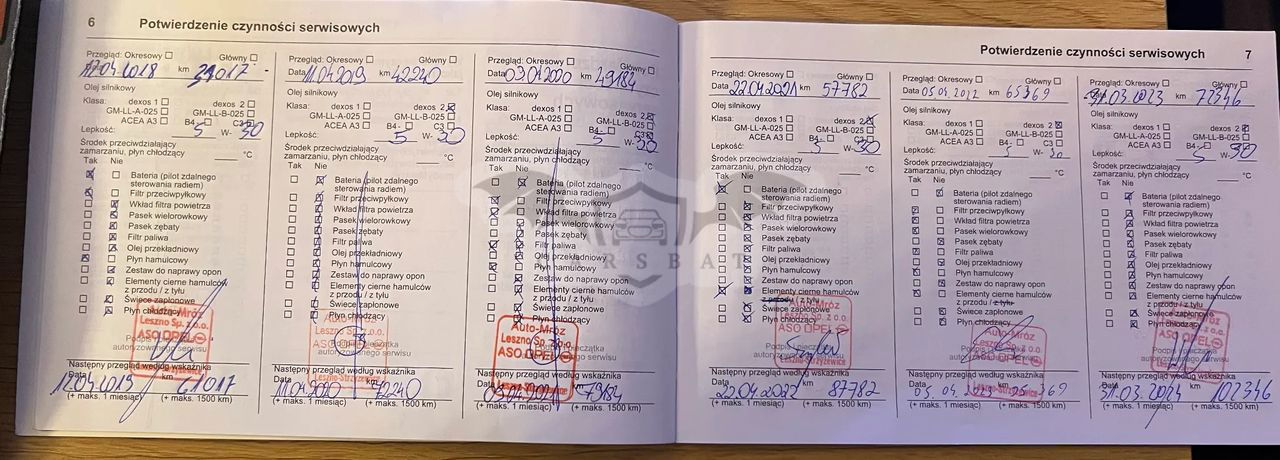 6 Potwierdzenie czynności serwisowych
Przegląd: Okresowy ☐ Główny ☐
17.04.2018 km 31017
Olej silnikowy
Klasa: dexos 1 ☐ dexos 2 ☐
GM-LL-A-025 ☐ GM-LL-B-025 ☐
ACEA A3 ☐ B4 ☐ C3
Lepkość: 5 W- 30
Środek przeciwdziałający
zamarzaniu, płyn chłodzący °C
Tak Nie
Bateria (pilot zdalnego
sterowania radiem)
Filtr przeciwpyłkowy
Wkład filtra powietrza
Pasek wielorowkowy
Pasek zębaty
Filtr paliwa
Olej przekładniowy
Płyn hamulcowy
Zestaw do naprawy opon
Elementy cierne hamulców
z przodu / z tyłu
Świece zapłonowe
Płyn chłodzący
Auto-Mróz
Leszno Sp. z o.o.
ASO OPEL
autoryzowanego serwisu
Następny przegląd według wskaźnika
Data km
17.04.2019
(+ maks. 1 miesiąc) (+ maks. 1500 km)
Przegląd: Okresowy ☐ Główny ☐
Data 11.04.2019 km 42240
Olej silnikowy
Klasa: dexos 1 ☐ dexos 2 ☒
GM-LL-A-025 ☐ GM-LL-B-025 ☐
ACEA A3 ☐ B4 ☐ C3 ☐
Lepkość: 5 W- 30
Środek przeciwdziałający
zamarzaniu, płyn chłodzący °C
Tak Nie
Bateria (pilot zdalnego
sterowania radiem)
Filtr przeciwpyłkowy
Wkład filtra powietrza
Pasek wielorowkowy
Pasek zębaty
Filtr paliwa
Olej przekładniowy
Płyn hamulcowy
Zestaw do naprawy opon
Elementy cierne hamulców
z przodu / z tyłu
Świece zapłonowe
Płyn chłodzący
Leszno Sp. z o.o.
ASO OPEL
autoryzowanego serwisu
Leszno-Strzyżewice
Następny przegląd według wskaźnika
Data km
11.04.2020
(+ maks. 1 miesiąc) (+ maks. 1500 km)
Przegląd: Okresowy ☐ Główny ☐
Data 03.04.2020 km 49184
Olej silnikowy
Klasa: dexos 1 ☐ dexos 2 ☒
GM-LL-A-025 ☐ GM-LL-B-025 ☐
ACEA A3 ☐ B4 ☐ C3
Lepkość: 5 W- 30
Środek przeciwdziałający
zamarzaniu, płyn chłodzący °C
Tak Nie
Bateria (pilot zdalnego
sterowania radiem)
Filtr przeciwpyłkowy
Wkład filtra powietrza
Pasek wielorowkowy
Pasek zębaty
Filtr paliwa
Olej przekładniowy
Płyn hamulcowy
Zestaw do naprawy opon
Elementy cierne hamulców
z przodu / z tyłu
Świece zapłonowe
Płyn chłodzący
Auto-Mróz
Leszno Sp. z o.o.
ASO OPEL
Następny przegląd według wskaźnika
Data km
03.04.2021 79184
(+ maks. 1 miesiąc) (+ maks. 1500 km)
Potwierdzenie czynności serwisowych 7
Przegląd: Okresowy ☐ Główny ☐
Data 22.04.2021 km 57782
Olej silnikowy
Klasa: dexos 1 ☐ dexos 2 ☒
GM-LL-A-025 ☐ GM-LL-B-025 ☐
ACEA A3 ☐ B4 ☐ C3
Lepkość: 5 W- 30
Środek przeciwdziałający
zamarzaniu, płyn chłodzący °C
Tak Nie
Bateria (pilot zdalnego
sterowania radiem)
Filtr przeciwpyłkowy
Wkład filtra powietrza
Pasek wielorowkowy
Pasek zębaty
Filtr paliwa
Olej przekładniowy
Płyn hamulcowy
Zestaw do naprawy opon
Elementy cierne hamulców
z przodu / z tyłu
Świece zapłonowe
Płyn chłodzący
Auto-Mróz
Leszno Sp. z o.o.
ASO OPEL
Leszno-Strzyżewice
Następny przegląd według wskaźnika
Data km
22.04.2022 87782
(+ maks. 1 miesiąc) (+ maks. 1500 km)
Przegląd: Okresowy ☐ Główny ☐
Data 05.04.2022 km 65369
Olej silnikowy
Klasa: dexos 1 ☐ dexos 2 ☒
GM-LL-A-025 ☐ GM-LL-B-025 ☐
ACEA A3 ☐ B4 ☐ C3 ☐
Lepkość: 5 W- 30
Środek przeciwdziałający
zamarzaniu, płyn chłodzący °C
Tak Nie
Bateria (pilot zdalnego
sterowania radiem)
Filtr przeciwpyłkowy
Wkład filtra powietrza
Pasek wielorowkowy
Pasek zębaty
Filtr paliwa
Olej przekładniowy
Płyn hamulcowy
Zestaw do naprawy opon
Elementy cierne hamulców
z przodu / z tyłu
Świece zapłonowe
Płyn chłodzący
Auto-Mróz
Następny przegląd według wskaźnika
Data km
05.04.2023 95369
(+ maks. 1 miesiąc) (+ maks. 1500 km)
Przegląd: Okresowy ☐ Główny ☐
Data 31.03.2023 km 72346
Olej silnikowy
Klasa: dexos 1 ☐ dexos 2 ☒
GM-LL-A-025 ☐ GM-LL-B-025 ☐
ACEA A3 ☐ B4 ☐ C3 ☐
Lepkość: 5 W- 30
Środek przeciwdziałający
zamarzaniu, płyn chłodzący °C
Tak Nie
Bateria (pilot zdalnego
sterowania radiem)
Filtr przeciwpyłkowy
Wkład filtra powietrza
Pasek wielorowkowy
Pasek zębaty
Filtr paliwa
Olej przekładniowy
Płyn hamulcowy
Zestaw do naprawy opon
Elementy cierne hamulców
z przodu / z tyłu
Świece zapłonowe
Płyn chłodzący
ASO OPEL
autoryzowanego serwisu
Następny przegląd według wskaźnika
Data km
31.03.2024 102346
(+ maks. 1 miesiąc) (+ maks. 1500 km)